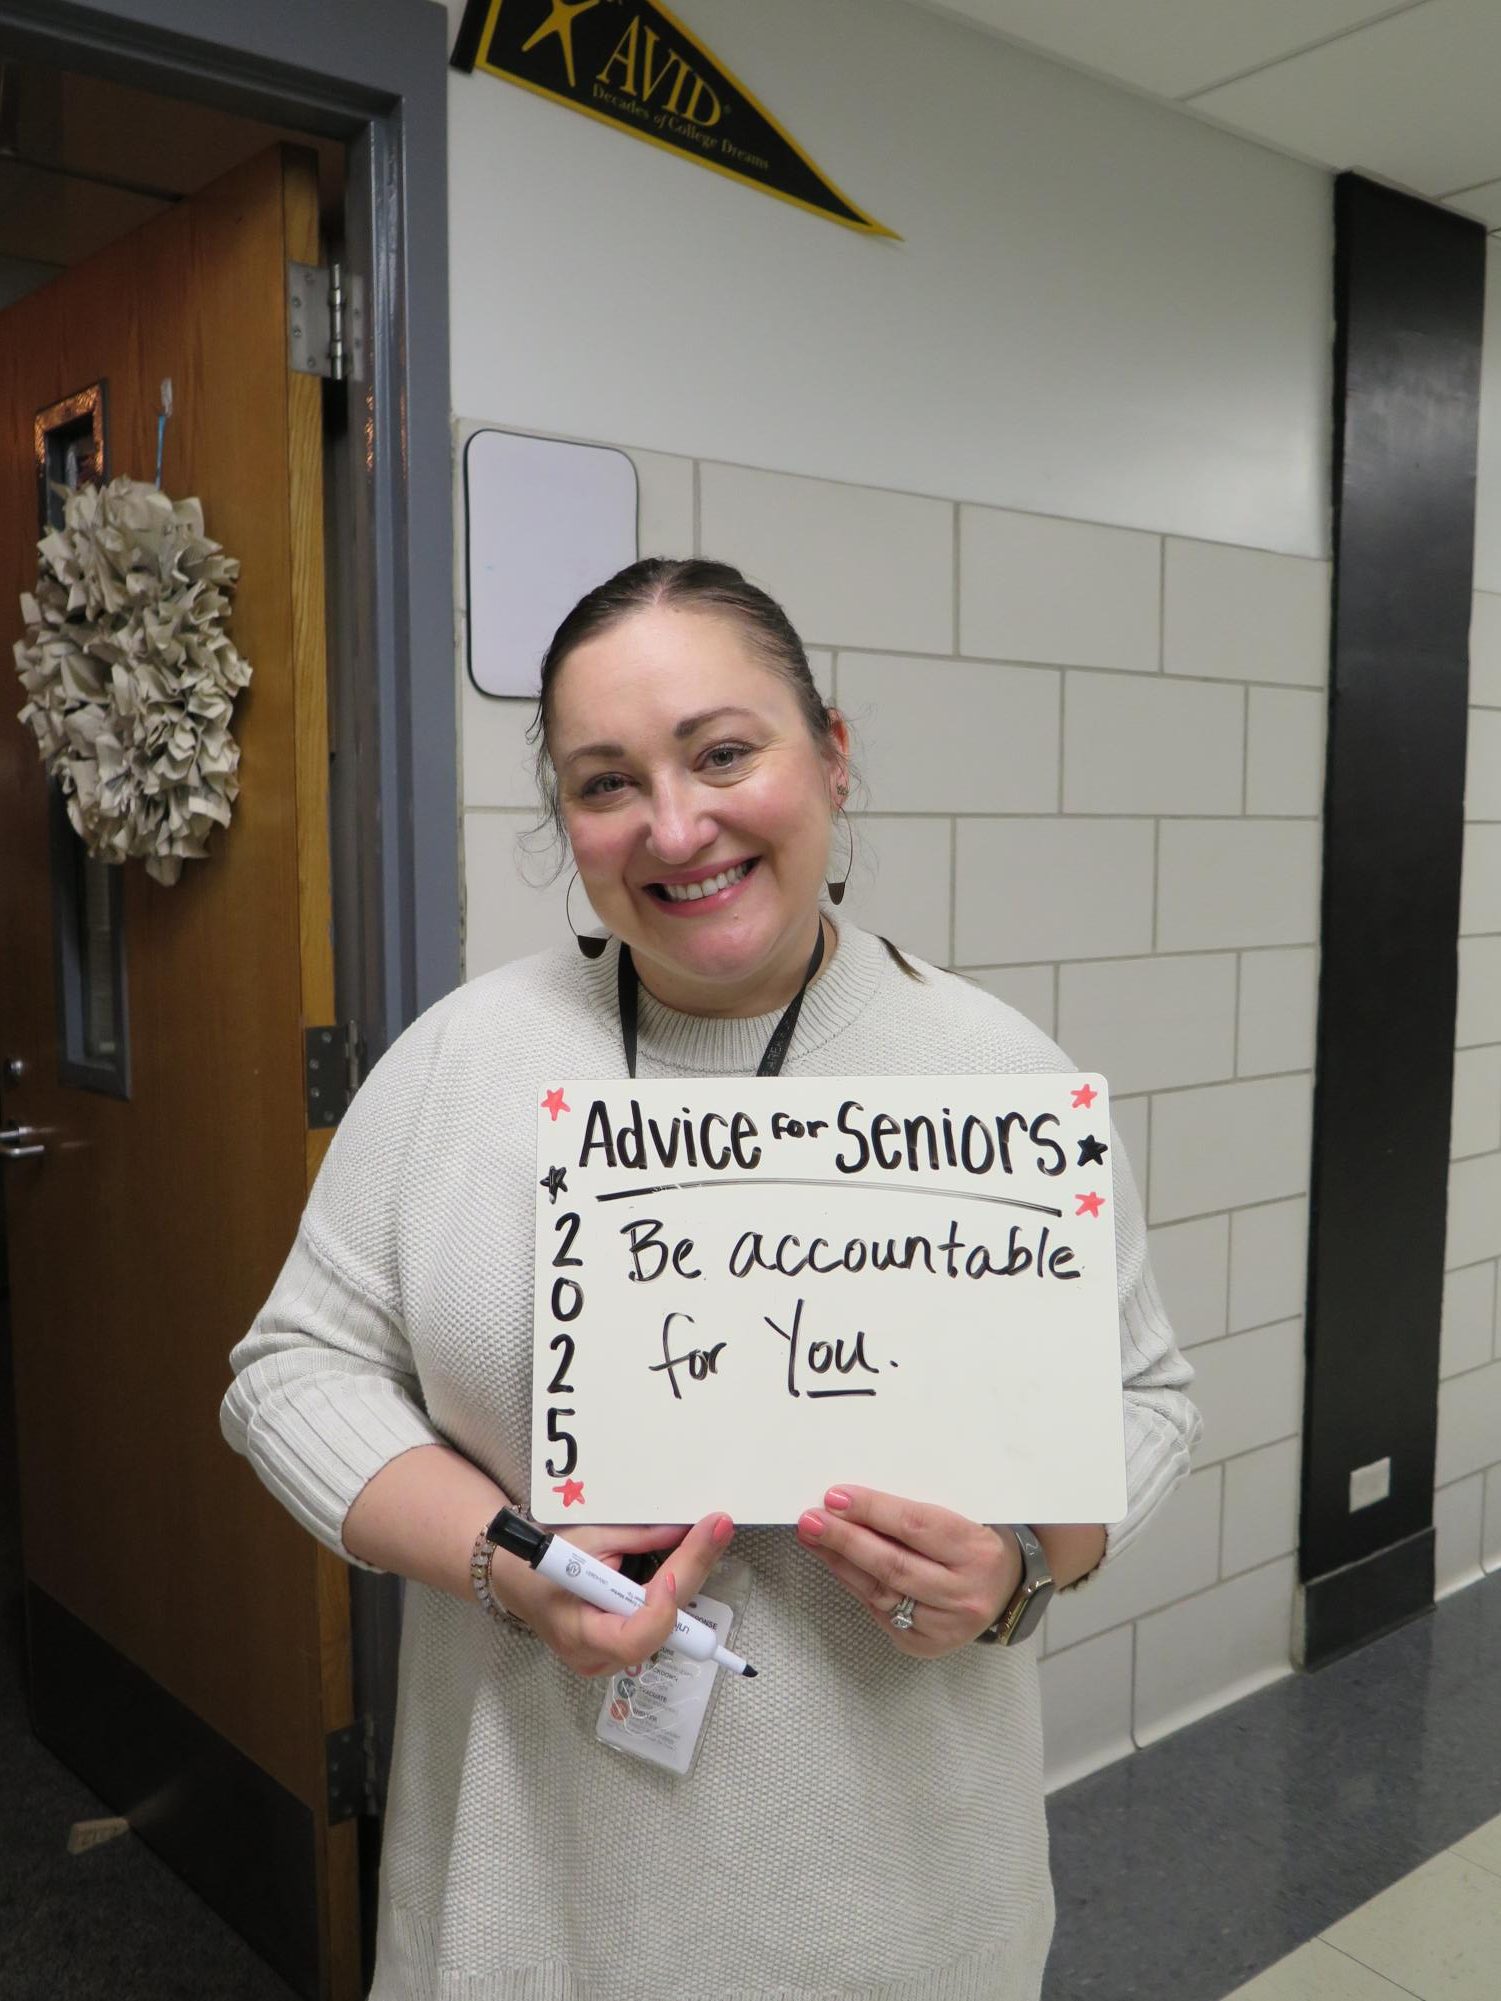 AVID
Decades of College Dreams
Advice for Seniors
2025
Be accountable
for You.
AREA
EVACUATE